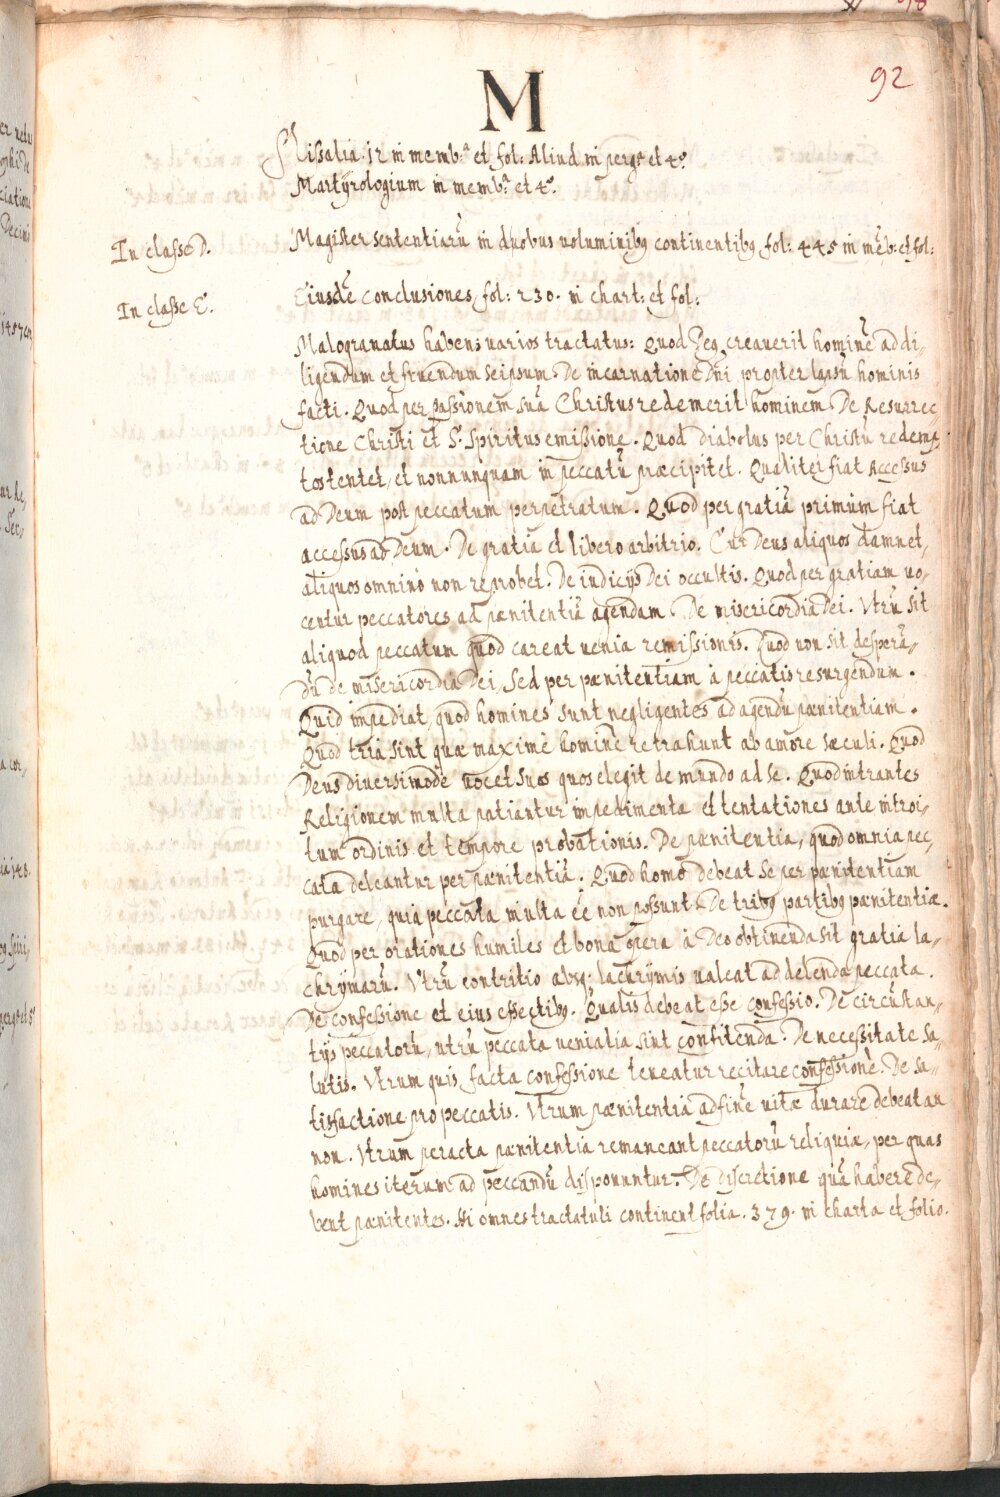 92
M
Missalia .12 in memb.ª et fol: Aliud in perg.ª et 4º.
Martyrologium in memb.ª et 4º.
In classe D. Magister sententiarũ in duobus voluminibꝫ continentibꝫ fol: 445 in mẽb: et fol:
In classe E. Eiusdẽ conclusiones, fol: 230. in chart: et fol:
Malogranatus habens varios tractatus: Quod Deꝫ creaverit hominẽ ad di„
ligendum et fruendum seipsum. De incarnatione Dñi propter lapsũ hominis
facti. Quod per passionem suã Christus redemerit hominem. De Resurrec„
tione Christi et S. Spiritus emissione. Quod diabolus per Christũ redemp„
tos tentet, et nonnunquam in peccatũ præcipitet. Qualiter fiat accessus
ad Deum post peccatum perpetratum. Quod per gratiã primùm fiat
accessus ad Deum. De gratia et libero arbitrio. Cur Deus aliquos damnet,
aliquos omnino non reprobet. De iudicijs Dei occultis. Quod per gratiam vo„
centur peccatores ad pænitentiã agendam. De misericordia Dei. Vtrũ sit
aliquod peccatum quod careat venia remissionis. Quod non sit desperã„
dũ de misericordia Dei, sed per pænitentiam à peccatis resurgendum.
Quid impediat, quod homines sunt negligentes ad agendũ pænitentiam.
Quod tria sint quæ maximè hominẽ retrahunt ab amore sæculi. Quod
Deus diversimodè vocet suos quos elegit de mundo ad se. Quod intrantes
Religionem multa patiantur impedimenta et tentationes ante introi„
tum ordinis et tempore probationis. De pænitentia, quod omnia pec„
cata deleantur per pænitentiã. Quod homo debeat se per pænitentiam
purgare, quia peccata multa eẽ non possunt. De tribꝫ partibꝫ pænitentiæ.
Quod per orationes humiles et bona opera à Deo obtinenda sit gratia la„
chrymarũ. Vtrũ contritio absqꝫ lachrymis valeat ad delenda peccata.
De confessione et eius effectibꝫ. Qualis debeat esse confessio. De circũstan„
tijs peccatorũ, utrũ peccata venialia sint confitenda. De necessitate sa„
lutis. Vtrum quis, facta confessione teneatur recitare confessionẽ. De sa„
tisfactione pro peccatis. Vtrum pænitentia ad finẽ vitæ durare debeat an
non. Vtrum peracta pænitentia remaneant peccatorũ reliquiæ, per quas
homines iterum ad peccandũ disponuntur. De discretione quã habere de„
bent pænitentes. Hi omnes tractatuli continent folia. 379. in charta et folio.